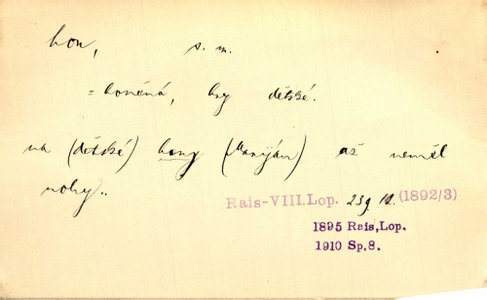 hon, s. m.
= honěná, hry dětské.
na (dětské) hony (Marýán) až neměl
nohy..
Rais-VIII.Lop. 239 10. (1892/3)
1895 Rais,Lop.
1910 Sp,8.